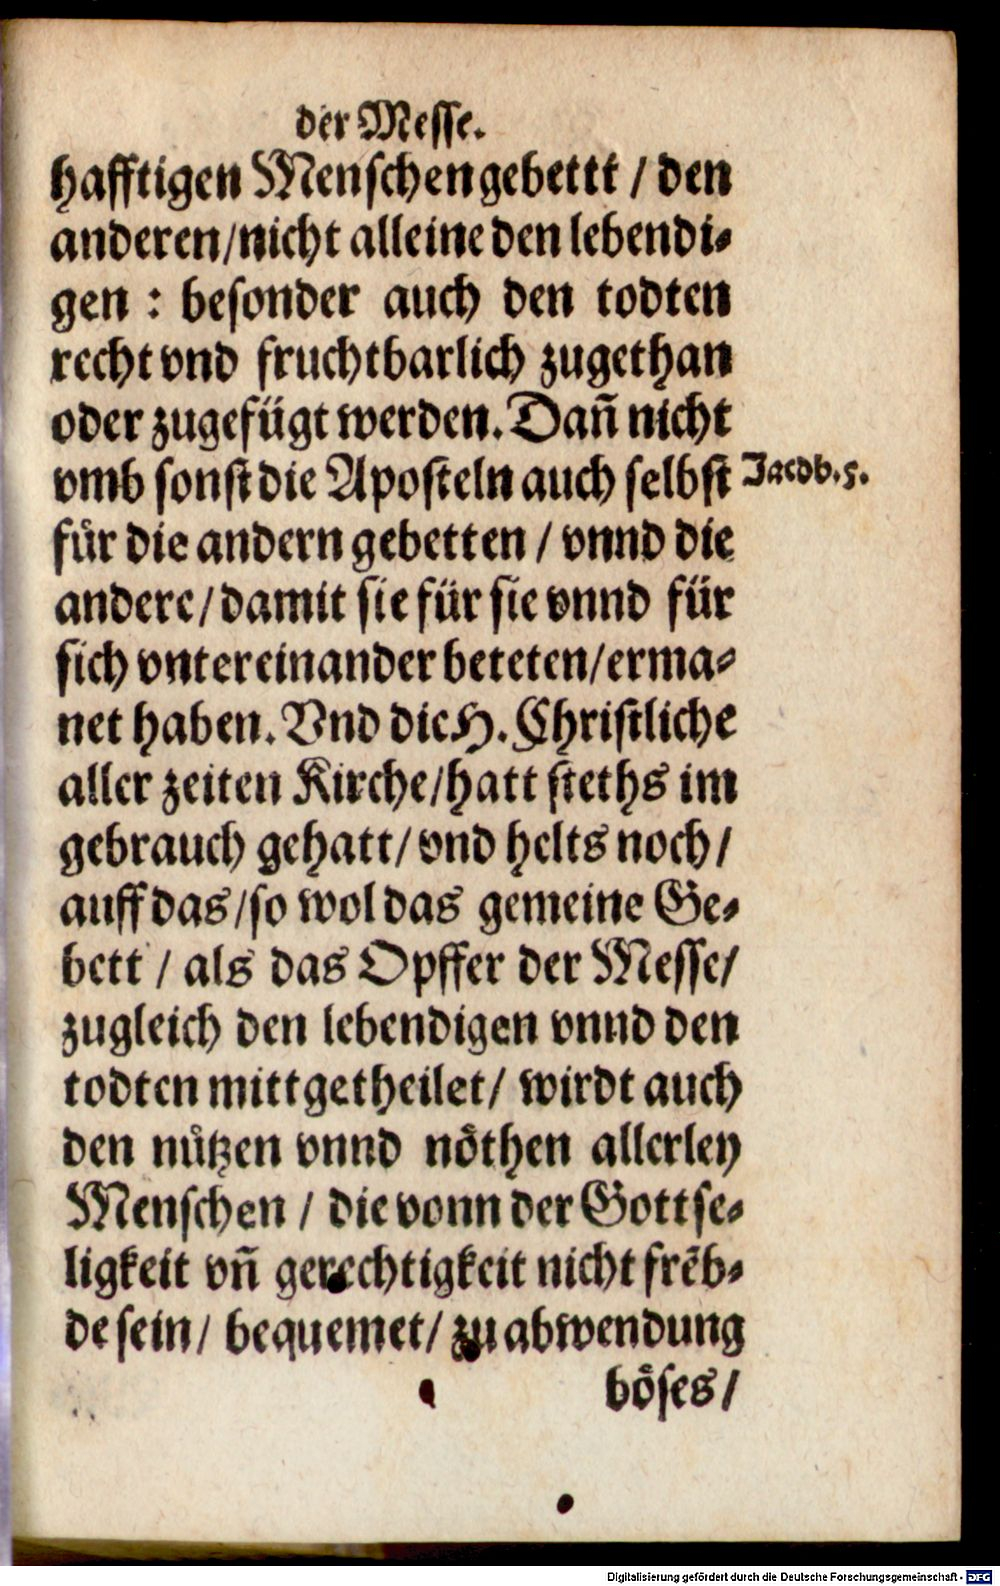 der Messe.
hafftigen Menschen gebettt / den
anderen/nicht alleine den lebendi⸗
gen : besonder auch den todten
recht vnd fruchtbarlich zugethan
oder zugefügt werden. Dañ nicht
vmb sonst die Aposteln auch selbst
Jacob. 5.
für die andern gebetten / vnnd die
andere/ damit sie für sie vnnd für
sich vntereinander beteten/erma⸗
net haben. Vnd die H. Christliche
aller zeiten Kirche/hatt steths im
gebrauch gehatt/ vnd helts noch/
auff das/so wol das gemeine Ge⸗
bett / als das Opffer der Messe/
zugleich den lebendigen vnnd den
todten mittgetheilet/ wirdt auch
den nützen vnnd nöthen allerley
Menschen / die vonn der Gottse⸗
ligkeit vñ gerechtigkeit nicht frēb⸗
de sein/ bequemet/ zu abwendung
böses/
Digitalisierung gefördert durch die Deutsche Forschungsgemeinschaft - DFG